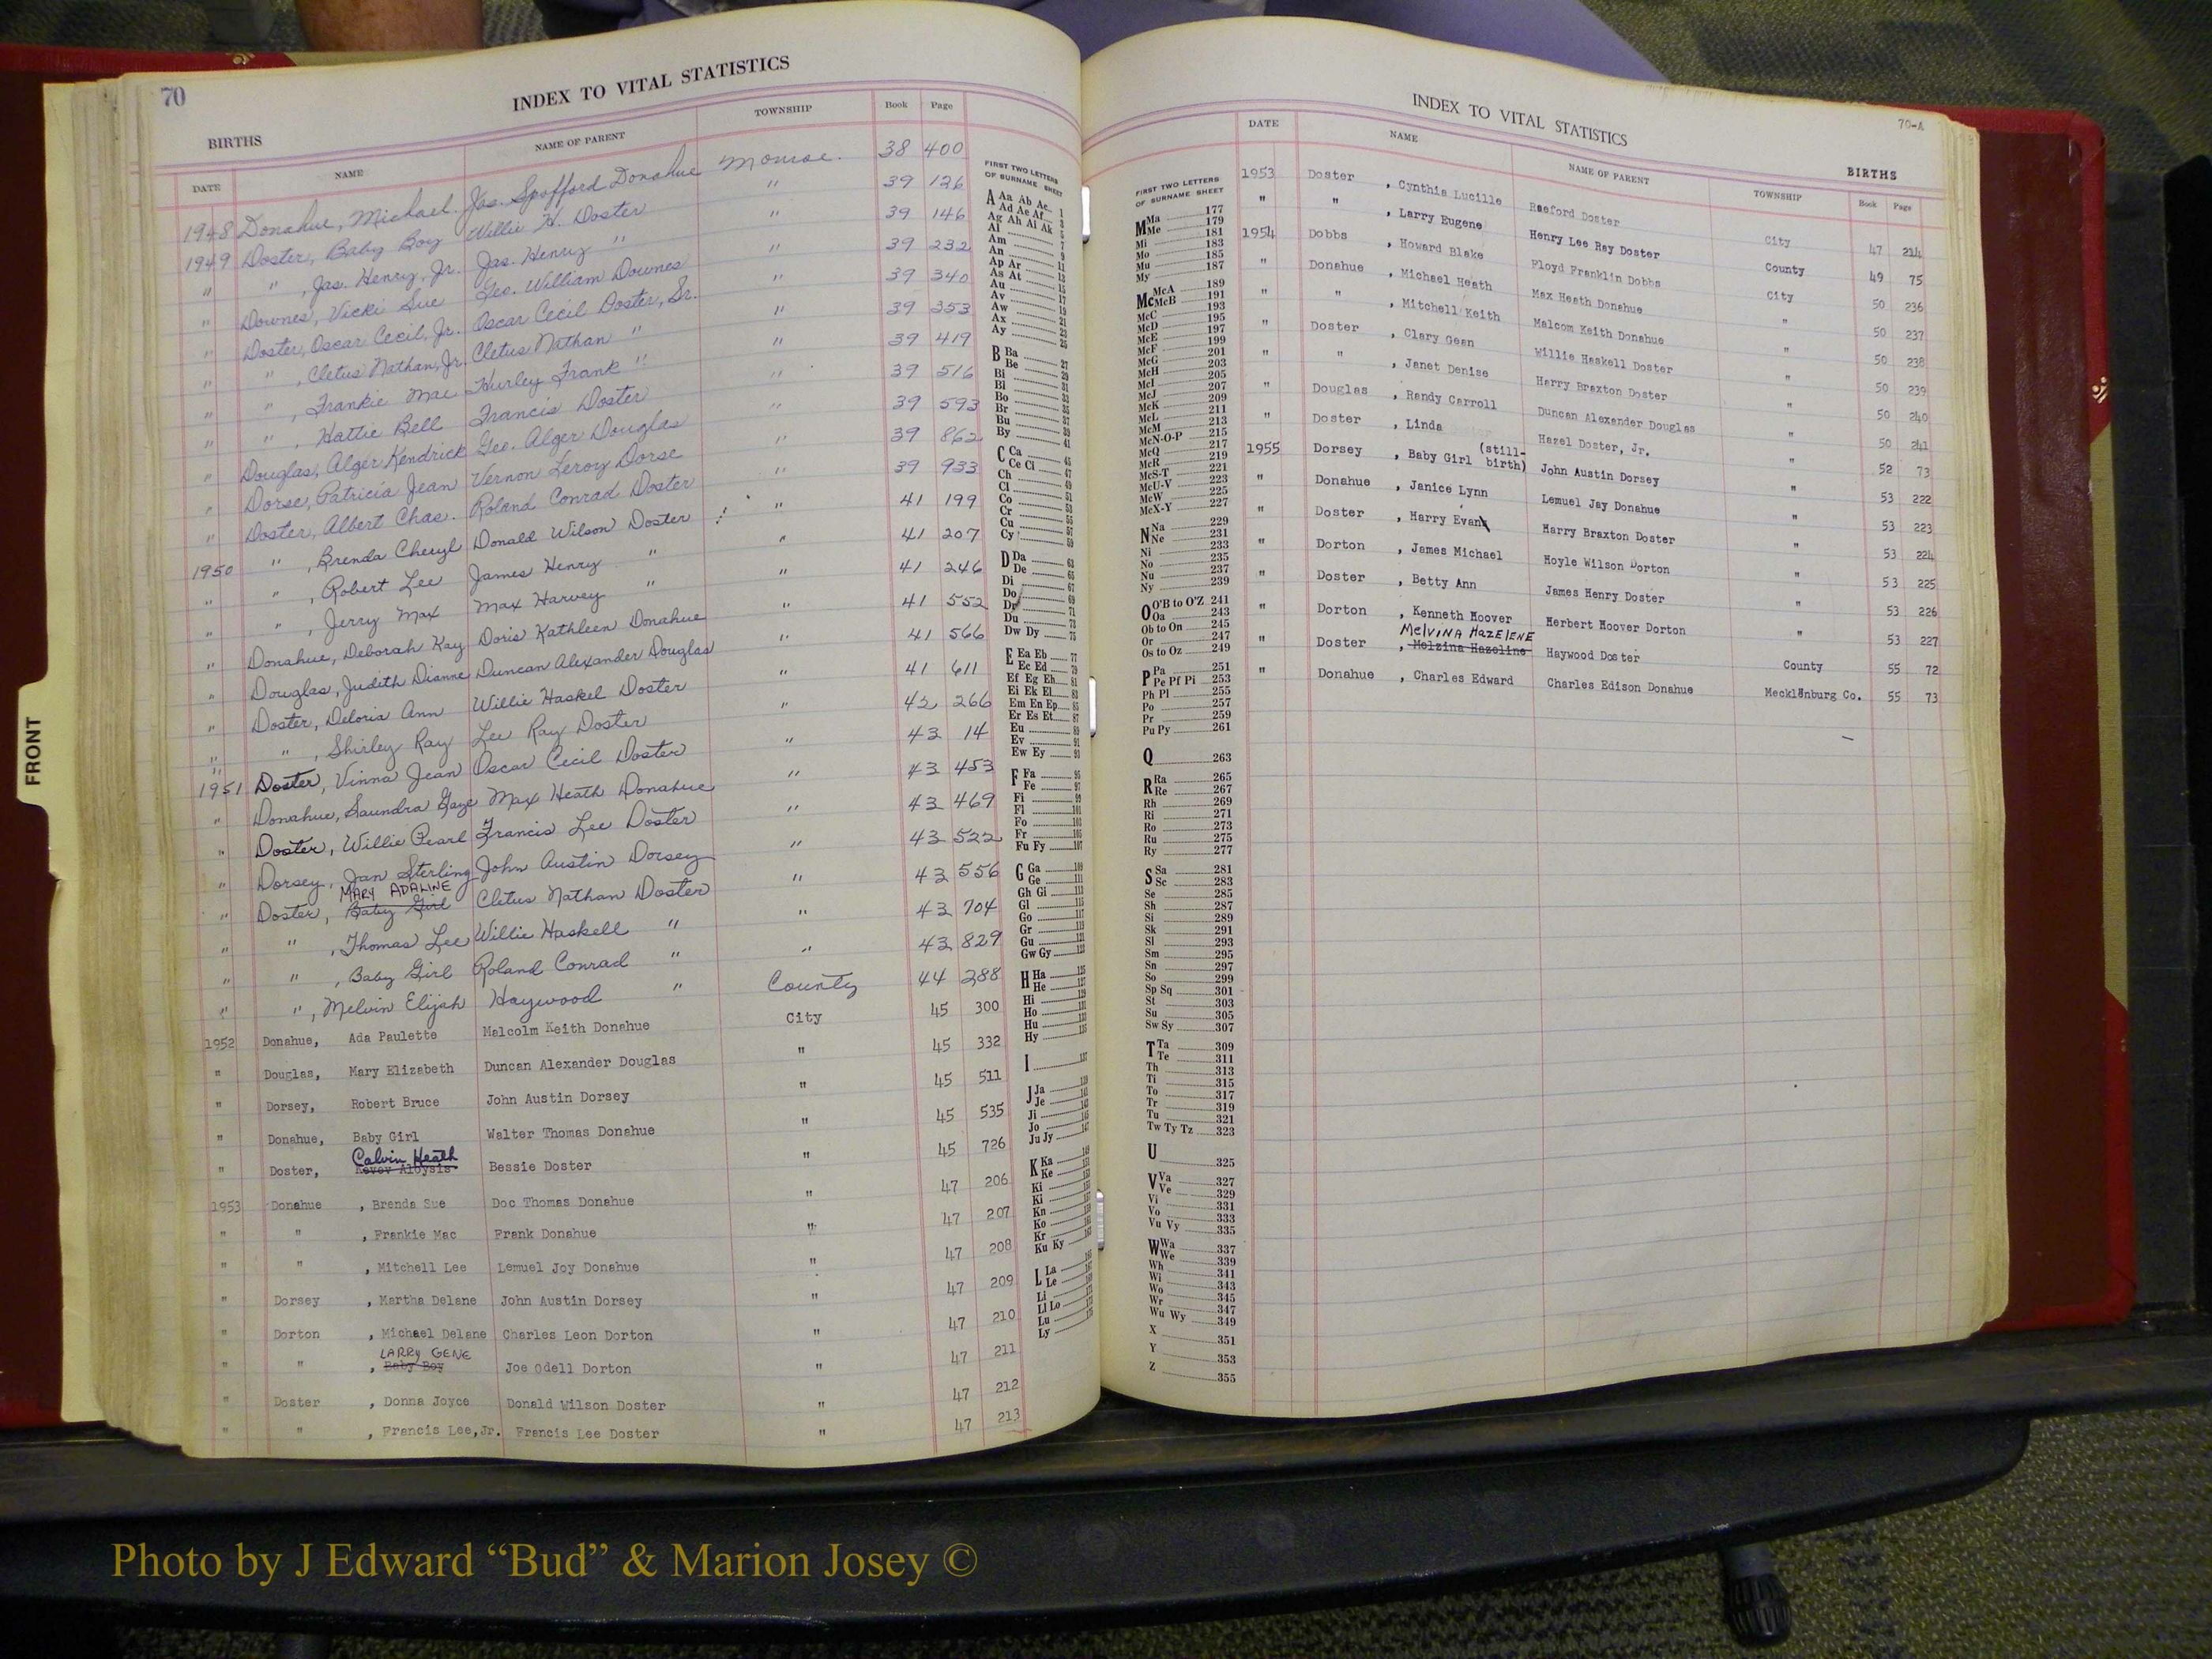 70
INDEX TO VITAL STATISTICS
BIRTHS
DATE NAME NAME OF PARENT TOWNSHIP Book Page
1948 Donahue, Michael Jas. Spofford Donahue Monroe. 38 400
1949 Doster, Baby Boy Willie H. Doster " 39 126
" " , Jas. Henry, Jr. Jas. Henry " " 39 146
" Downes, Vicki Sue Geo. William Downes " 39 232
" Doster, Oscar Cecil, Jr. Oscar Cecil Doster, Sr. " 39 340
" " , Cletus Nathan, Jr. Cletus Nathan " " 39 353
" " , Frankie Mae Hurley Frank " " 39 419
" " , Hattie Bell Francis Doster " 39 516
" Douglas, Alger Kendrick Geo. Alger Douglas " 39 593
" Dorse, Patricia Jean Vernon Leroy Dorse " 39 862
" Doster, Albert Chas. Roland Conrad Doster " 39 933
1950 " , Brenda Cheryl Donald Wilson Doster " 41 199
" " , Robert Lee James Henry " " 41 207
" " , Jerry Max Max Harvey " " 41 246
" Donahue, Deborah Kay Doris Kathleen Donahue " 41 552
" Douglas, Judith Dianne Duncan Alexander Douglas " 41 566
" Doster, Deloris Ann Willie Haskel Doster " 41 611
" " , Shirley Ray Lee Ray Doster " 42 266
1951 Doster, Vinna Jean Oscar Cecil Doster " 43 14
" Donahue, Saundra Gaye Max Heath Donahue " 43 453
" Doster, Willie Pearl Francis Lee Doster " 43 469
" Dorsey, Jan Sterling John Austin Dorsey " 43 522
MARY ADALINE
" Doster, Baby Girl Cletus Nathan Doster " 43 556
" " , Thomas Lee Willie Haskell " " 43 704
" " , Baby Girl Roland Conrad " " 43 829
" " , Melvin Elijah Haywood " County 44 288
1952 Donahue, Ada Paulette Malcolm Keith Donahue City 45 300
" Douglas, Mary Elizabeth Duncan Alexander Douglas " 45 332
" Dorsey, Robert Bruce John Austin Dorsey " 45 511
" Donahue, Baby Girl Walter Thomas Donahue " 45 535
Calvin Heath
" Doster, Aloysis Bessie Doster " 45 726
1953 Donahue , Brenda Sue Doc Thomas Donahue " 47 206
" " , Frankie Mac Frank Donahue " 47 207
" " , Mitchell Lee Lemuel Joy Donahue " 47 208
" Dorsey , Martha Delane John Austin Dorsey " 47 209
" Dorton , Michael Delane Charles Leon Dorton " 47 210
LARRY GENE
" " , Baby Boy Joe Odell Dorton " 47 211
" Doster , Donna Joyce Donald Wilson Doster " 47 212
" " , Francis Lee,Jr. Francis Lee Doster " 47 213
FIRST TWO LETTERS
OF SURNAME SHEET
A Aa Ab Ac 1
Ad Ae Af 3
Ag Ah Ai Ak
Al
Am
An
Ap Ar 11
As At
Au
Av
Aw
Ax
Ay
B Ba 27
Be 29
Bi 31
Bl
Bo
Br
Bu
By 41
C Ca 45
Ce Ci
Ch
Cl 51
Co 53
Cr
Cu 57
Cy 59
D Da 63
De 65
Di 67
Do 69
Dr 71
Du 73
Dw Dy 75
E Ea Eb 77
Ec Ed
Ef Eg Eh 81
Ei Ek El 83
Em En Ep
Er Es Et 87
Eu 89
Ev 91
Ew Ey 93
F Fa 95
Fe 97
Fi 99
Fl 101
Fo 103
Fr 105
Fu Fy 107
G Ga 109
Ge 111
Gh Gi 113
Gl 115
Go 117
Gr
Gu 121
Gw Gy 123
H Ha 125
He 127
Hi
Ho
Hu
Hy 135
I 137
J Ja 139
Je
Ji
Jo
Ju Jy
K Ka
Ke
Ki
Kn
Ko
Kr
Ku Ky
L La
Le
Li
Ll Lo
Lu
Ly
FRONT
INDEX TO VITAL STATISTICS
70-A
BIRTHS
DATE NAME NAME OF PARENT TOWNSHIP Book Page
1953 Doster , Cynthia Lucille Raeford Doster City 47 214
" " , Larry Eugene Henry Lee Ray Doster County 49 75
1954 Dobbs , Howard Blake Floyd Franklin Dobbs City 50 236
" Donahue , Michael Heath Max Heath Donahue " 50 237
" " , Mitchell Keith Malcom Keith Donahue " 50 238
" Doster , Clary Gean Willie Haskell Doster " 50 239
" " , Janet Denise Harry Braxton Doster " 50 240
" Douglas , Randy Carroll Duncan Alexander Douglas " 50 241
" Doster , Linda Hazel Doster, Jr. " 52 73
1955 Dorsey , Baby Girl (still-birth) John Austin Dorsey " 53 222
" Donahue , Janice Lynn Lemuel Jay Donahue " 53 223
" Doster , Harry Evans Harry Braxton Doster " 53 224
" Dorton , James Michael Hoyle Wilson Dorton " 53 225
" Doster , Betty Ann James Henry Doster " 53 226
" Dorton , Kenneth Hoover Herbert Hoover Dorton " 53 227
MELVINA HAZELENE
" Doster , Melzina Hazeline Haywood Doster County 55 72
" Donahue , Charles Edward Charles Edison Donahue Mecklenburg Co. 55 73
FIRST TWO LETTERS
OF SURNAME SHEET
M Ma 177
Me 179
Mi 181
Mo 183
Mu 185
My 187
Mc McA 189
McB 191
McC 193
McD 195
McE 197
McF 199
McG 201
McH 203
McI 205
McJ 207
McK 209
McL 211
McM 213
McN-O-P 215
McQ 217
McR 219
McS-T 221
McU-V 223
McW 225
McX-Y 227
N Na 229
Ne 231
Ni 233
No 235
Nu 237
Ny 239
O O'B to O'Z 241
Oa 243
Ob to On 245
Or 247
Os to Oz 249
P Pa 251
Pe Pf Pi 253
Ph Pl 255
Po 257
Pr 259
Pu Py 261
Q 263
R Ra 265
Re 267
Rh 269
Ri 271
Ro 273
Ru 275
Ry 277
S Sa 281
Sc 283
Se 285
Sh 287
Si 289
Sk 291
Sl 293
Sm 295
Sn 297
So 299
Sp Sq 301
St 303
Su 305
Sw Sy 307
T Ta 309
Te 311
Th 313
Ti 315
To 317
Tr 319
Tu 321
Tw Ty Tz 323
U 325
V Va 327
Ve 329
Vi 331
Vo 333
Vu Vy 335
W Wa 337
We 339
Wh 341
Wi 343
Wo 345
Wr 347
Wu Wy 349
X 351
Y 353
Z 355
Photo by J Edward “Bud” & Marion Josey ©